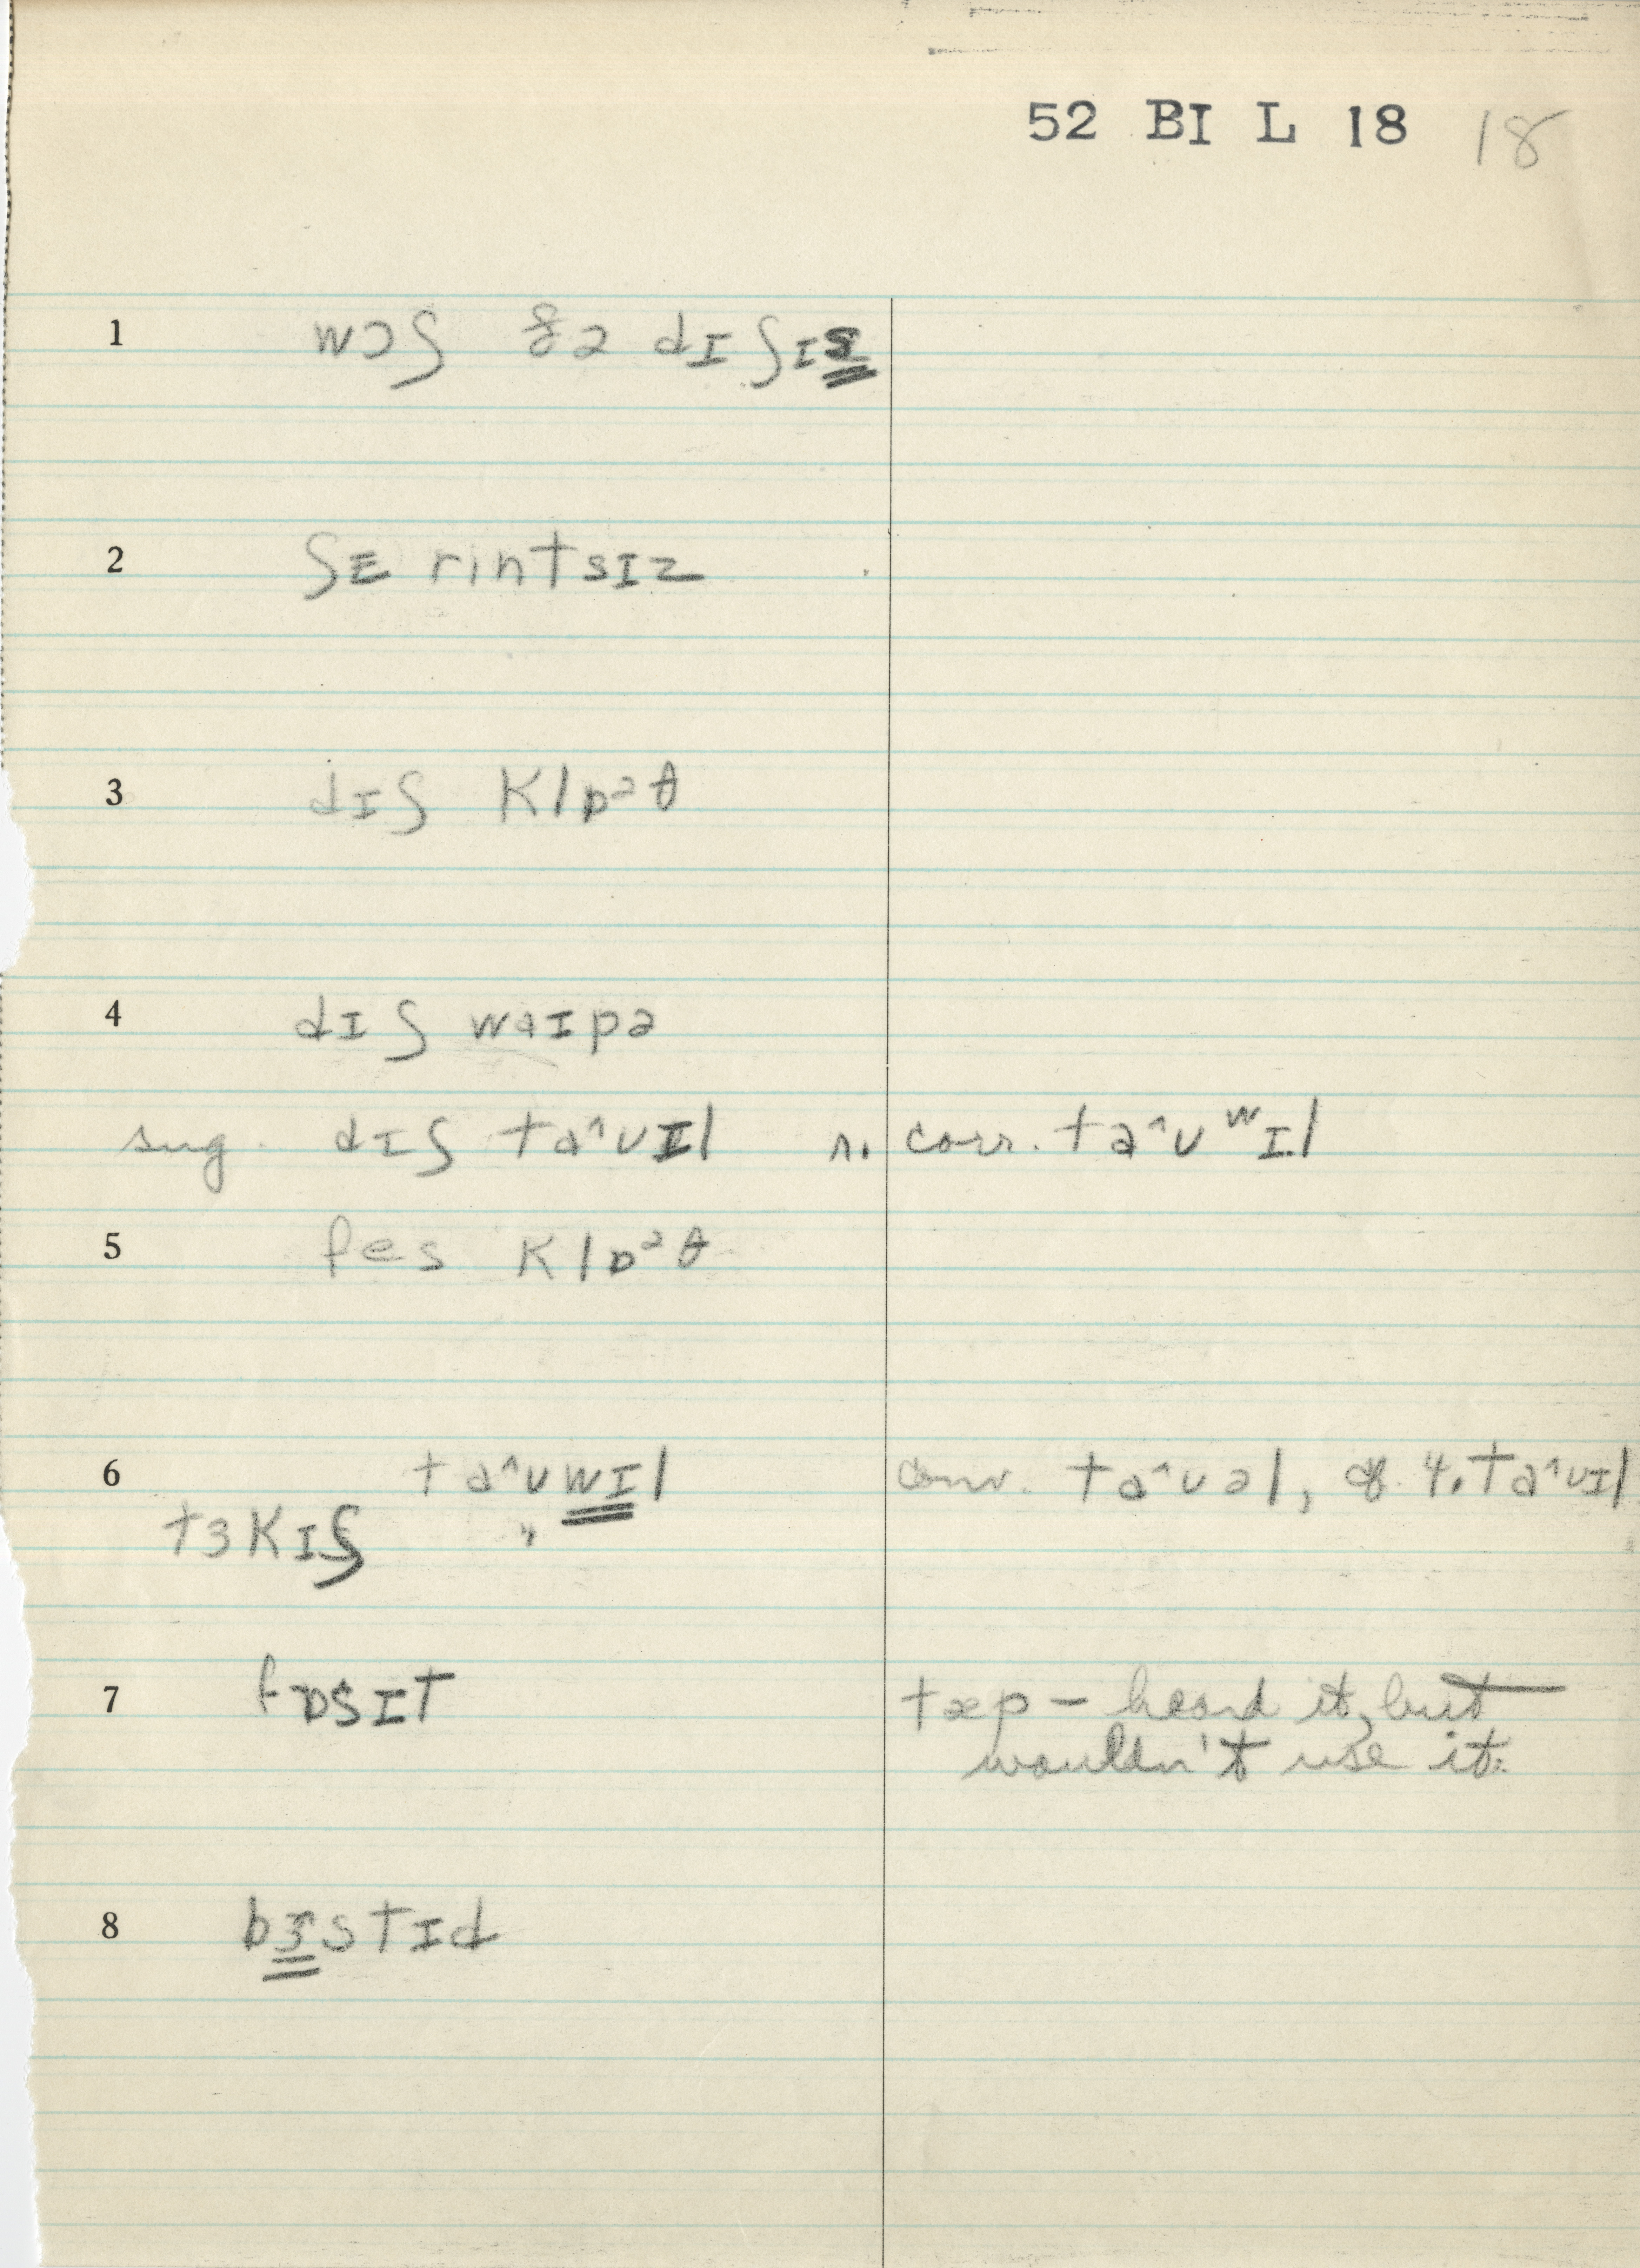 52 BI L 18 18
1 wɔʃ ðə dɪʃɪs
2 ʃɛ rintsɪz
3 dɪʃ klɒᵊθ
4 dɪʃ waɪpə
sug. dɪʃ ta^ʊɪl r. corr. ta^ʊʷɪl
5 fes klɒᵊθ
6 ta^ʊwɪl conv. ta^ʊəl, cf. 4. ta^ʊɪl
tɜkɪʃ "
7 fɒsɪt tæp – heard it, but
wouldn't use it.
8 bɜstɪd